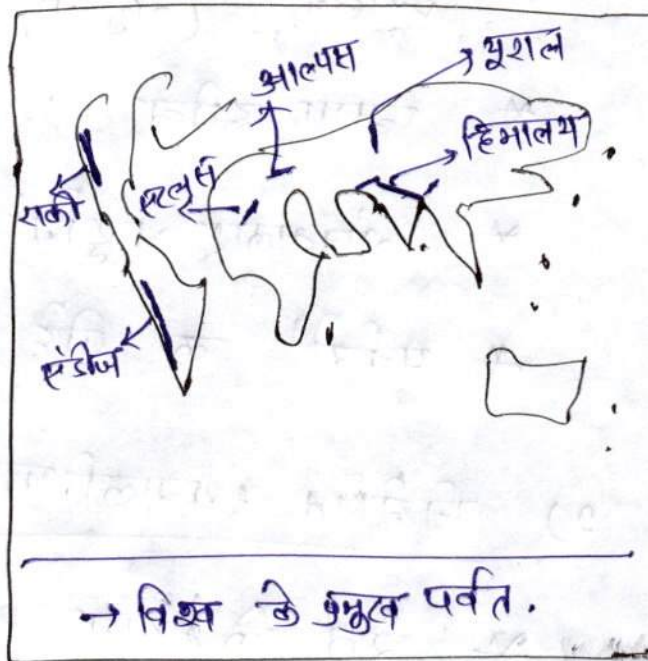 आल्पस
यूराल
हिमालय
राकी
एटलस
एंडीज
→ विश्व के प्रमुख पर्वत.